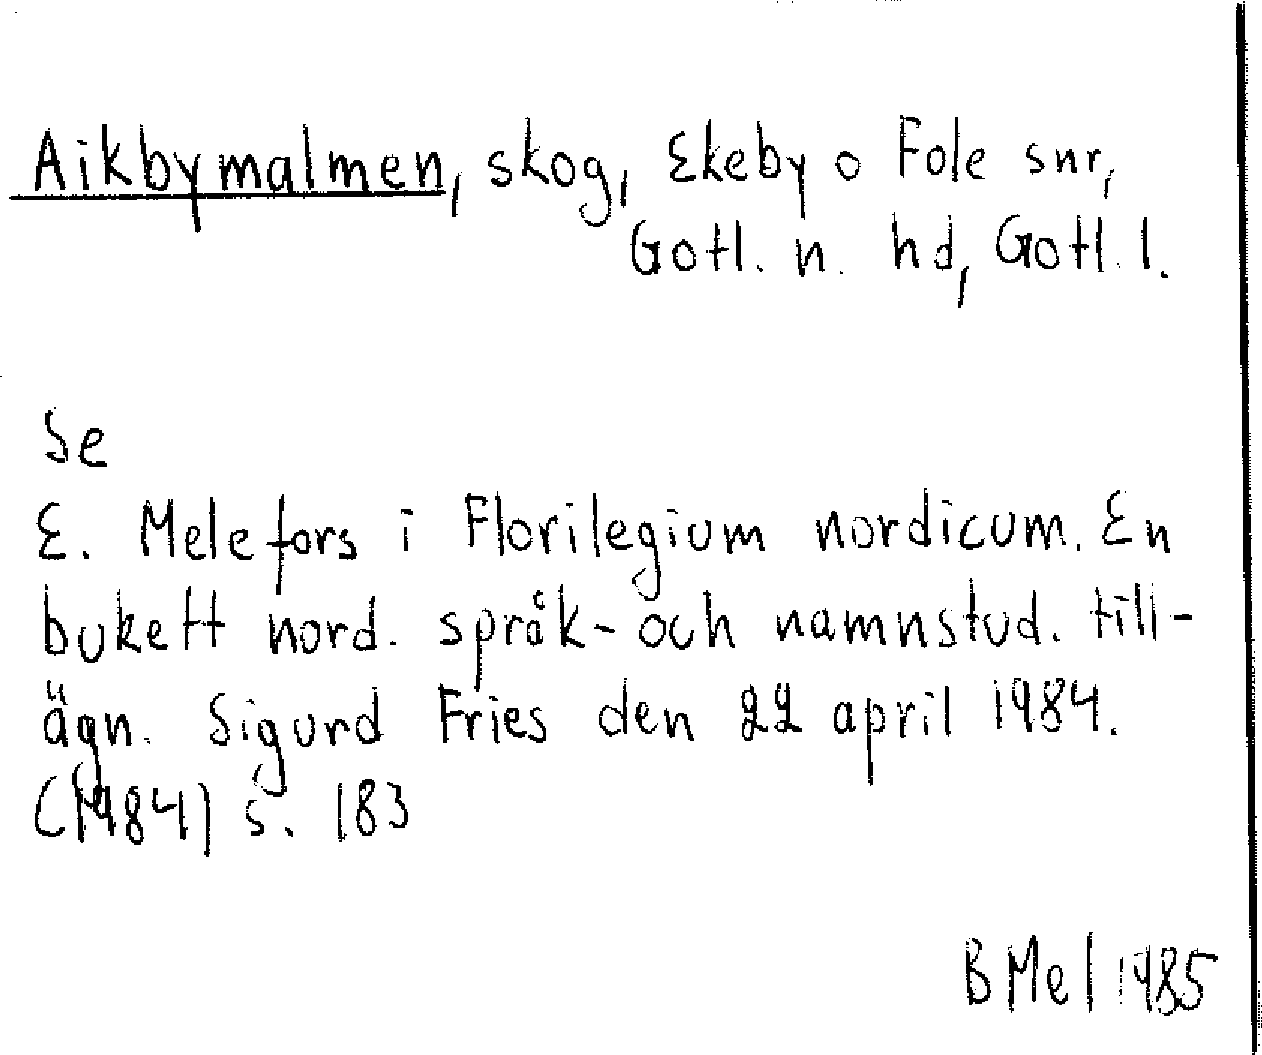 Aikbymalmen, skog, Ekeby o Fole snr,
Gotl. n. hd, Gotl. l.
Se
E. Melefors i Florilegium nordicum. En
bukett nord. språk- och namnstud. till-
ägn. Sigurd Fries den 22 april 1984.
(1984) s. 183
B Mel 1985